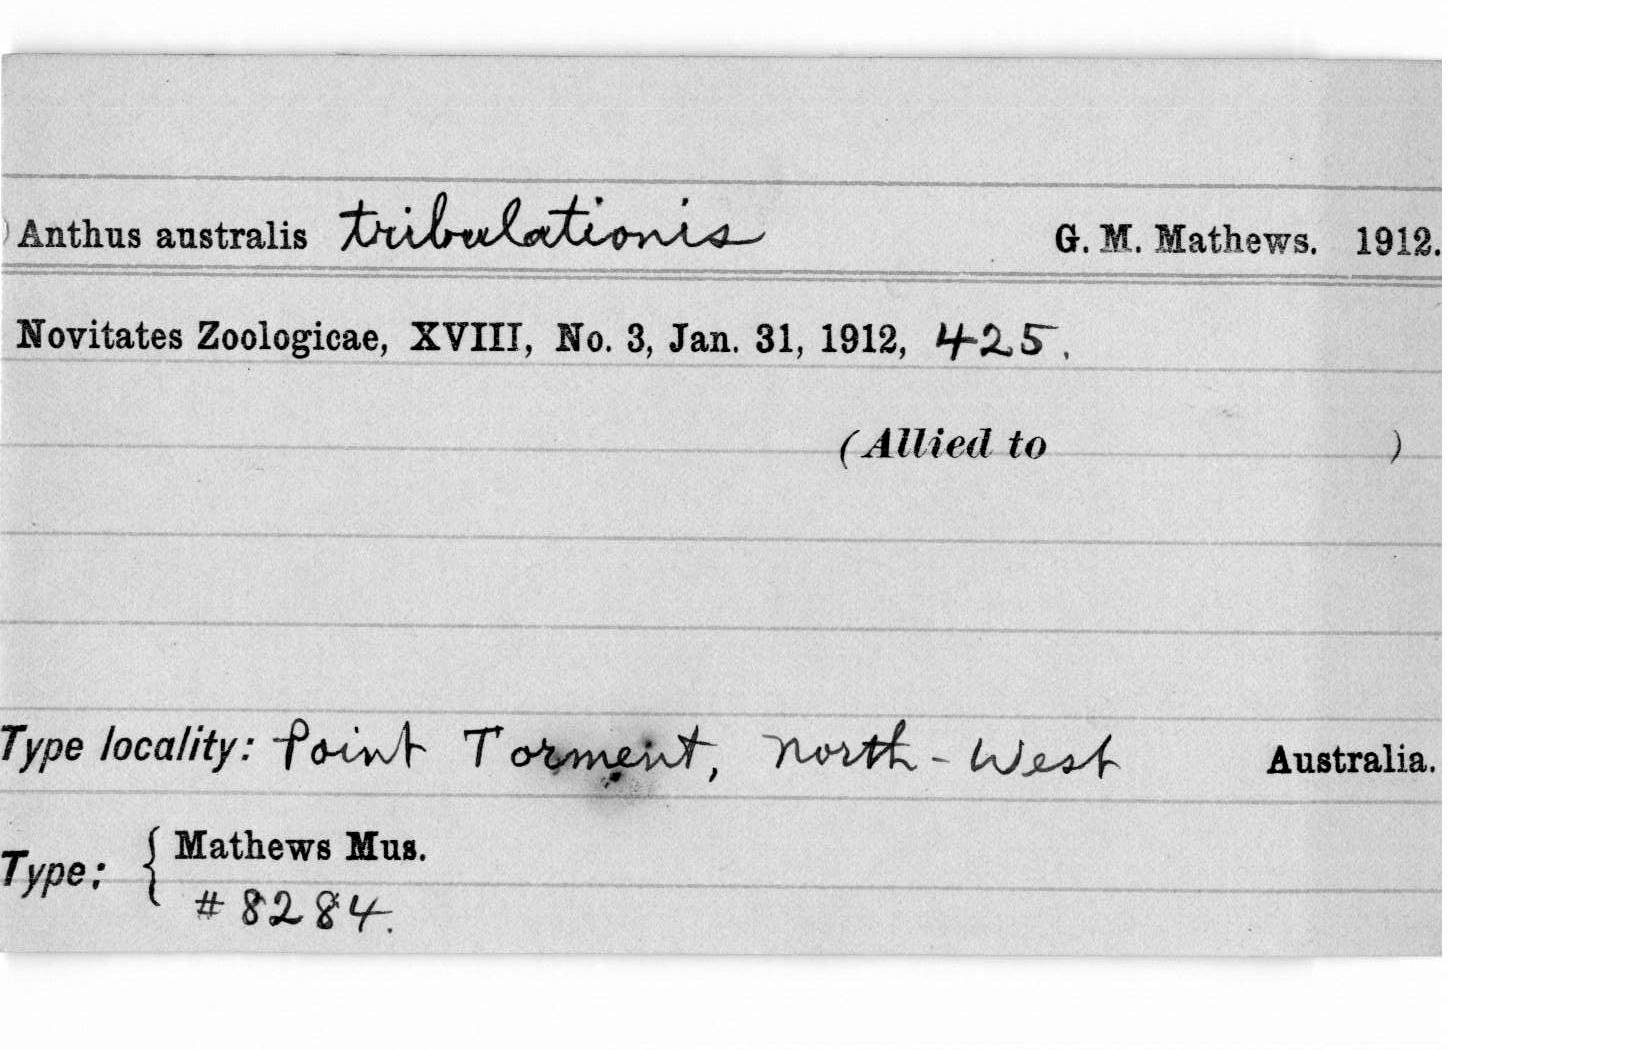 Anthus australis tribulationis G. M. Mathews. 1912.
Novitates Zoologicae, XVIII, No. 3, Jan. 31, 1912, 425.
(Allied to )
Type locality: Point Torment, North-West Australia.
Type: { Mathews Mus.
# 8284.